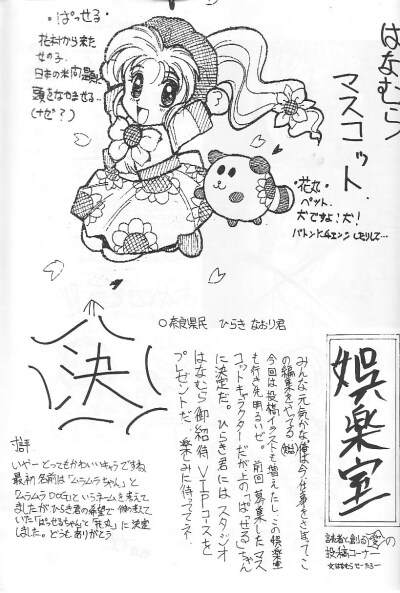 はなむら
マスコット
・ぱっせる
花村から来た
女の子
日本の米問題に
頭をなやませる…
(ナゼ?)
・花丸
ペット.
犬ですよ!犬!
バトンにチェンジしたりして…
決
○奈良県民 ひらき なおり君
娯楽室
みんな元気かな 俺は今、仕事をさぼってこ
の編集をやってる
今回は投稿イラストも増えたし、この娯楽室
も行き先明るいぜ。 前回募集したマス
コットキャラクターだが上の「ぱっせる」ちゃん
に決定だ。ひらき君にはスタジオ
はなむら御招待VIPコースを
プレゼントだ。楽しみに待っててネ。
読者と創る愛の
投稿コーナー
☆はなむらせーたろー
寸評
いやーとってもかわいいキャラですね
最初、名前は「ムラムラちゃん」と
「ムラムラDOG」というネームを考えて
ましたがひらき君の希望で 他の考えて
いた「ぱっせるちゃん」と「花丸」に決定
しました。どうもありがとう